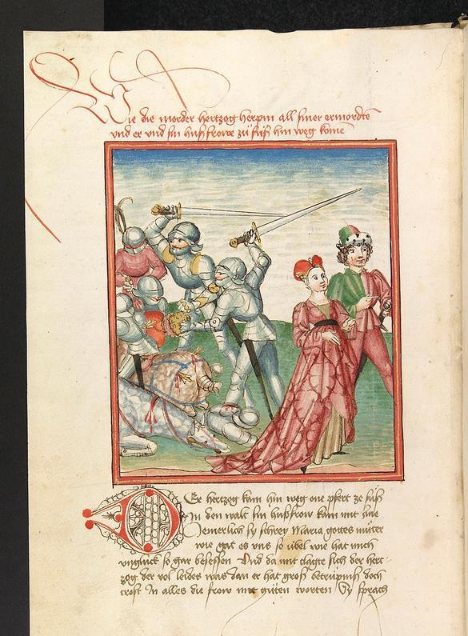 Wie die morder hertzog herpin all siner ermordte
vnd er vnd sin husfrowe zu fuß hin weg kome
Der hertzog kam hin weg one pfert ze fuß
In den walt sin husfrow kam mit ime
Jemerlich sy schrey Maria gottes muter
wie gat es vns so übel wie hat mich
vngluck so gar besessen Vnd da mit clagte sich der hert
zog der vol leides was dan er hat groß betrupniß doch
trost In alles die frow mit guten worten Sy sprach